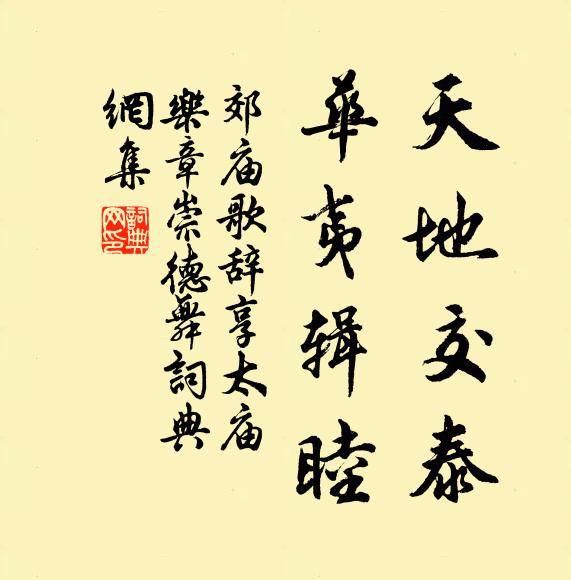 天地交泰
華夷輯睦
郊庙歌辞享太庙
樂章崇德舞詞典
網集
詞典网印